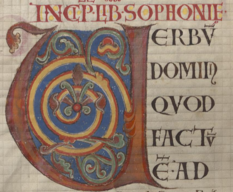 INCP LIB SOPHONIE
VERBŪ
DOMINI
QVOD
FACTŪ
Ē AD